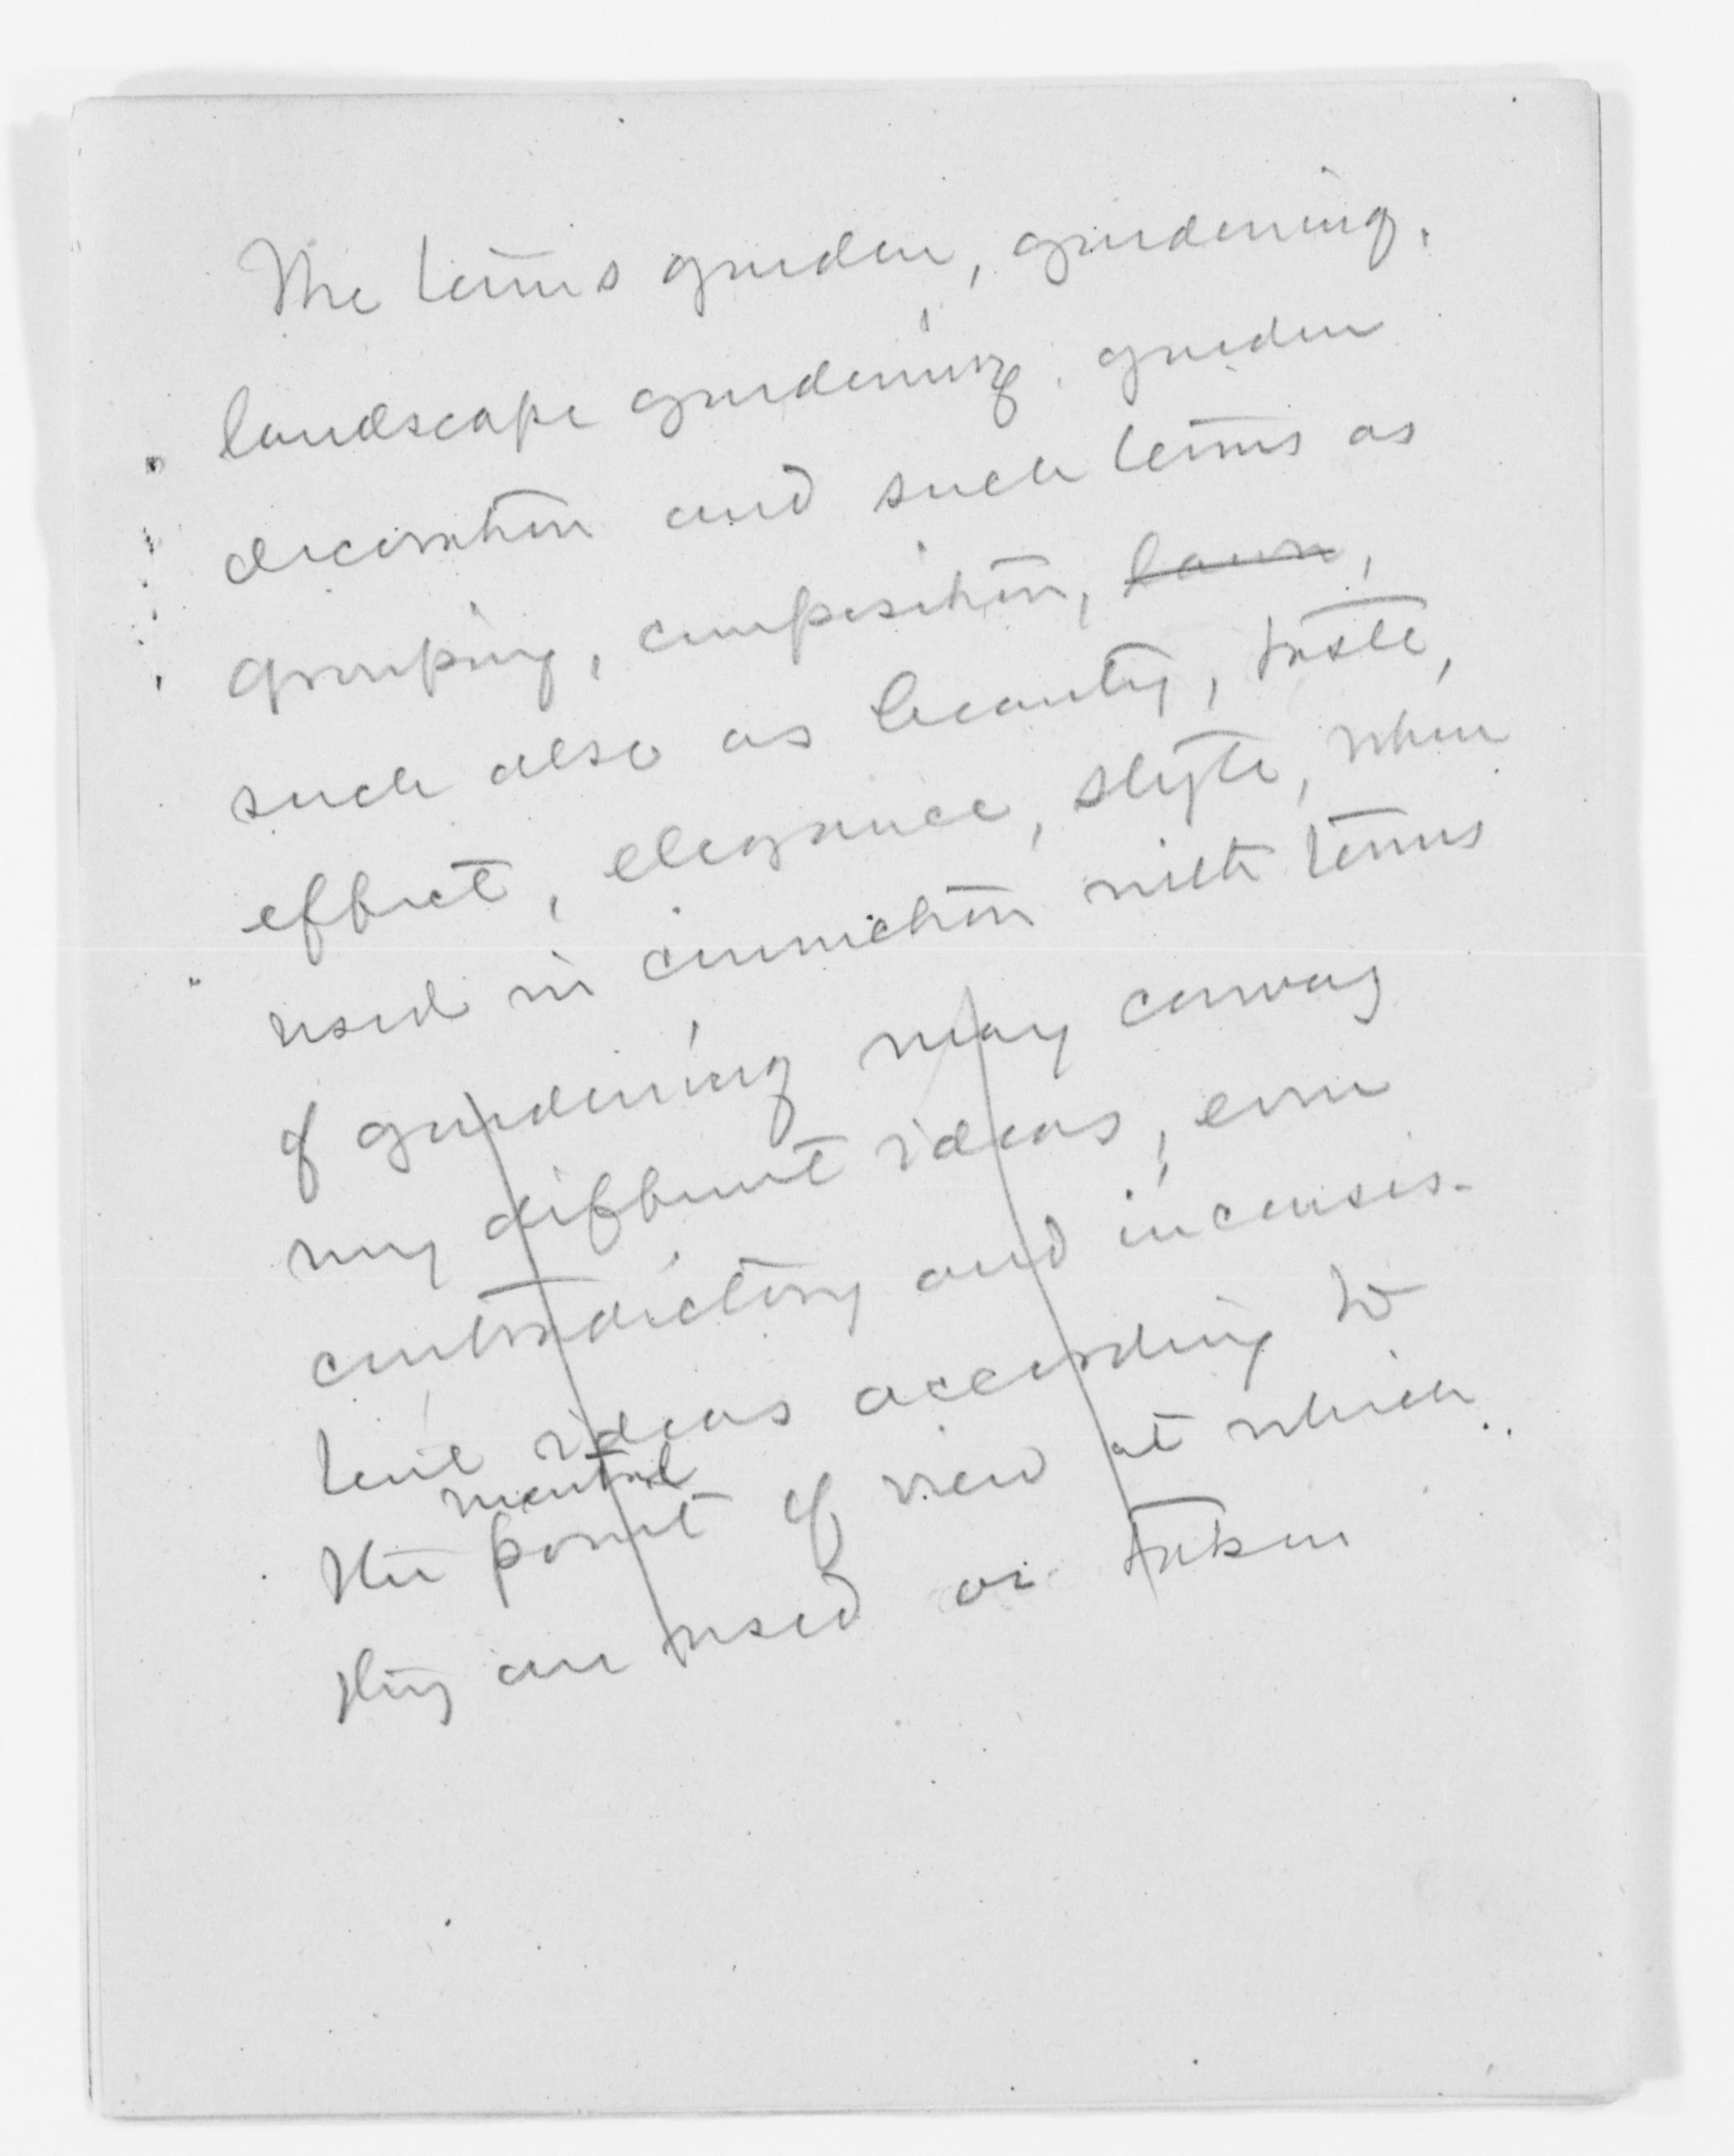 The terms garden, gardening,
landscape gardening, garden
decoration and such terms as
grouping, composition, lawn,
such also as beauty, taste,
effect, elegance, style, when
used in connection with terms
of gardening may convey
very different ideas, even
contradictory and inconsis-
tent ideas according to
mental
the point of view at which
they are used or taken